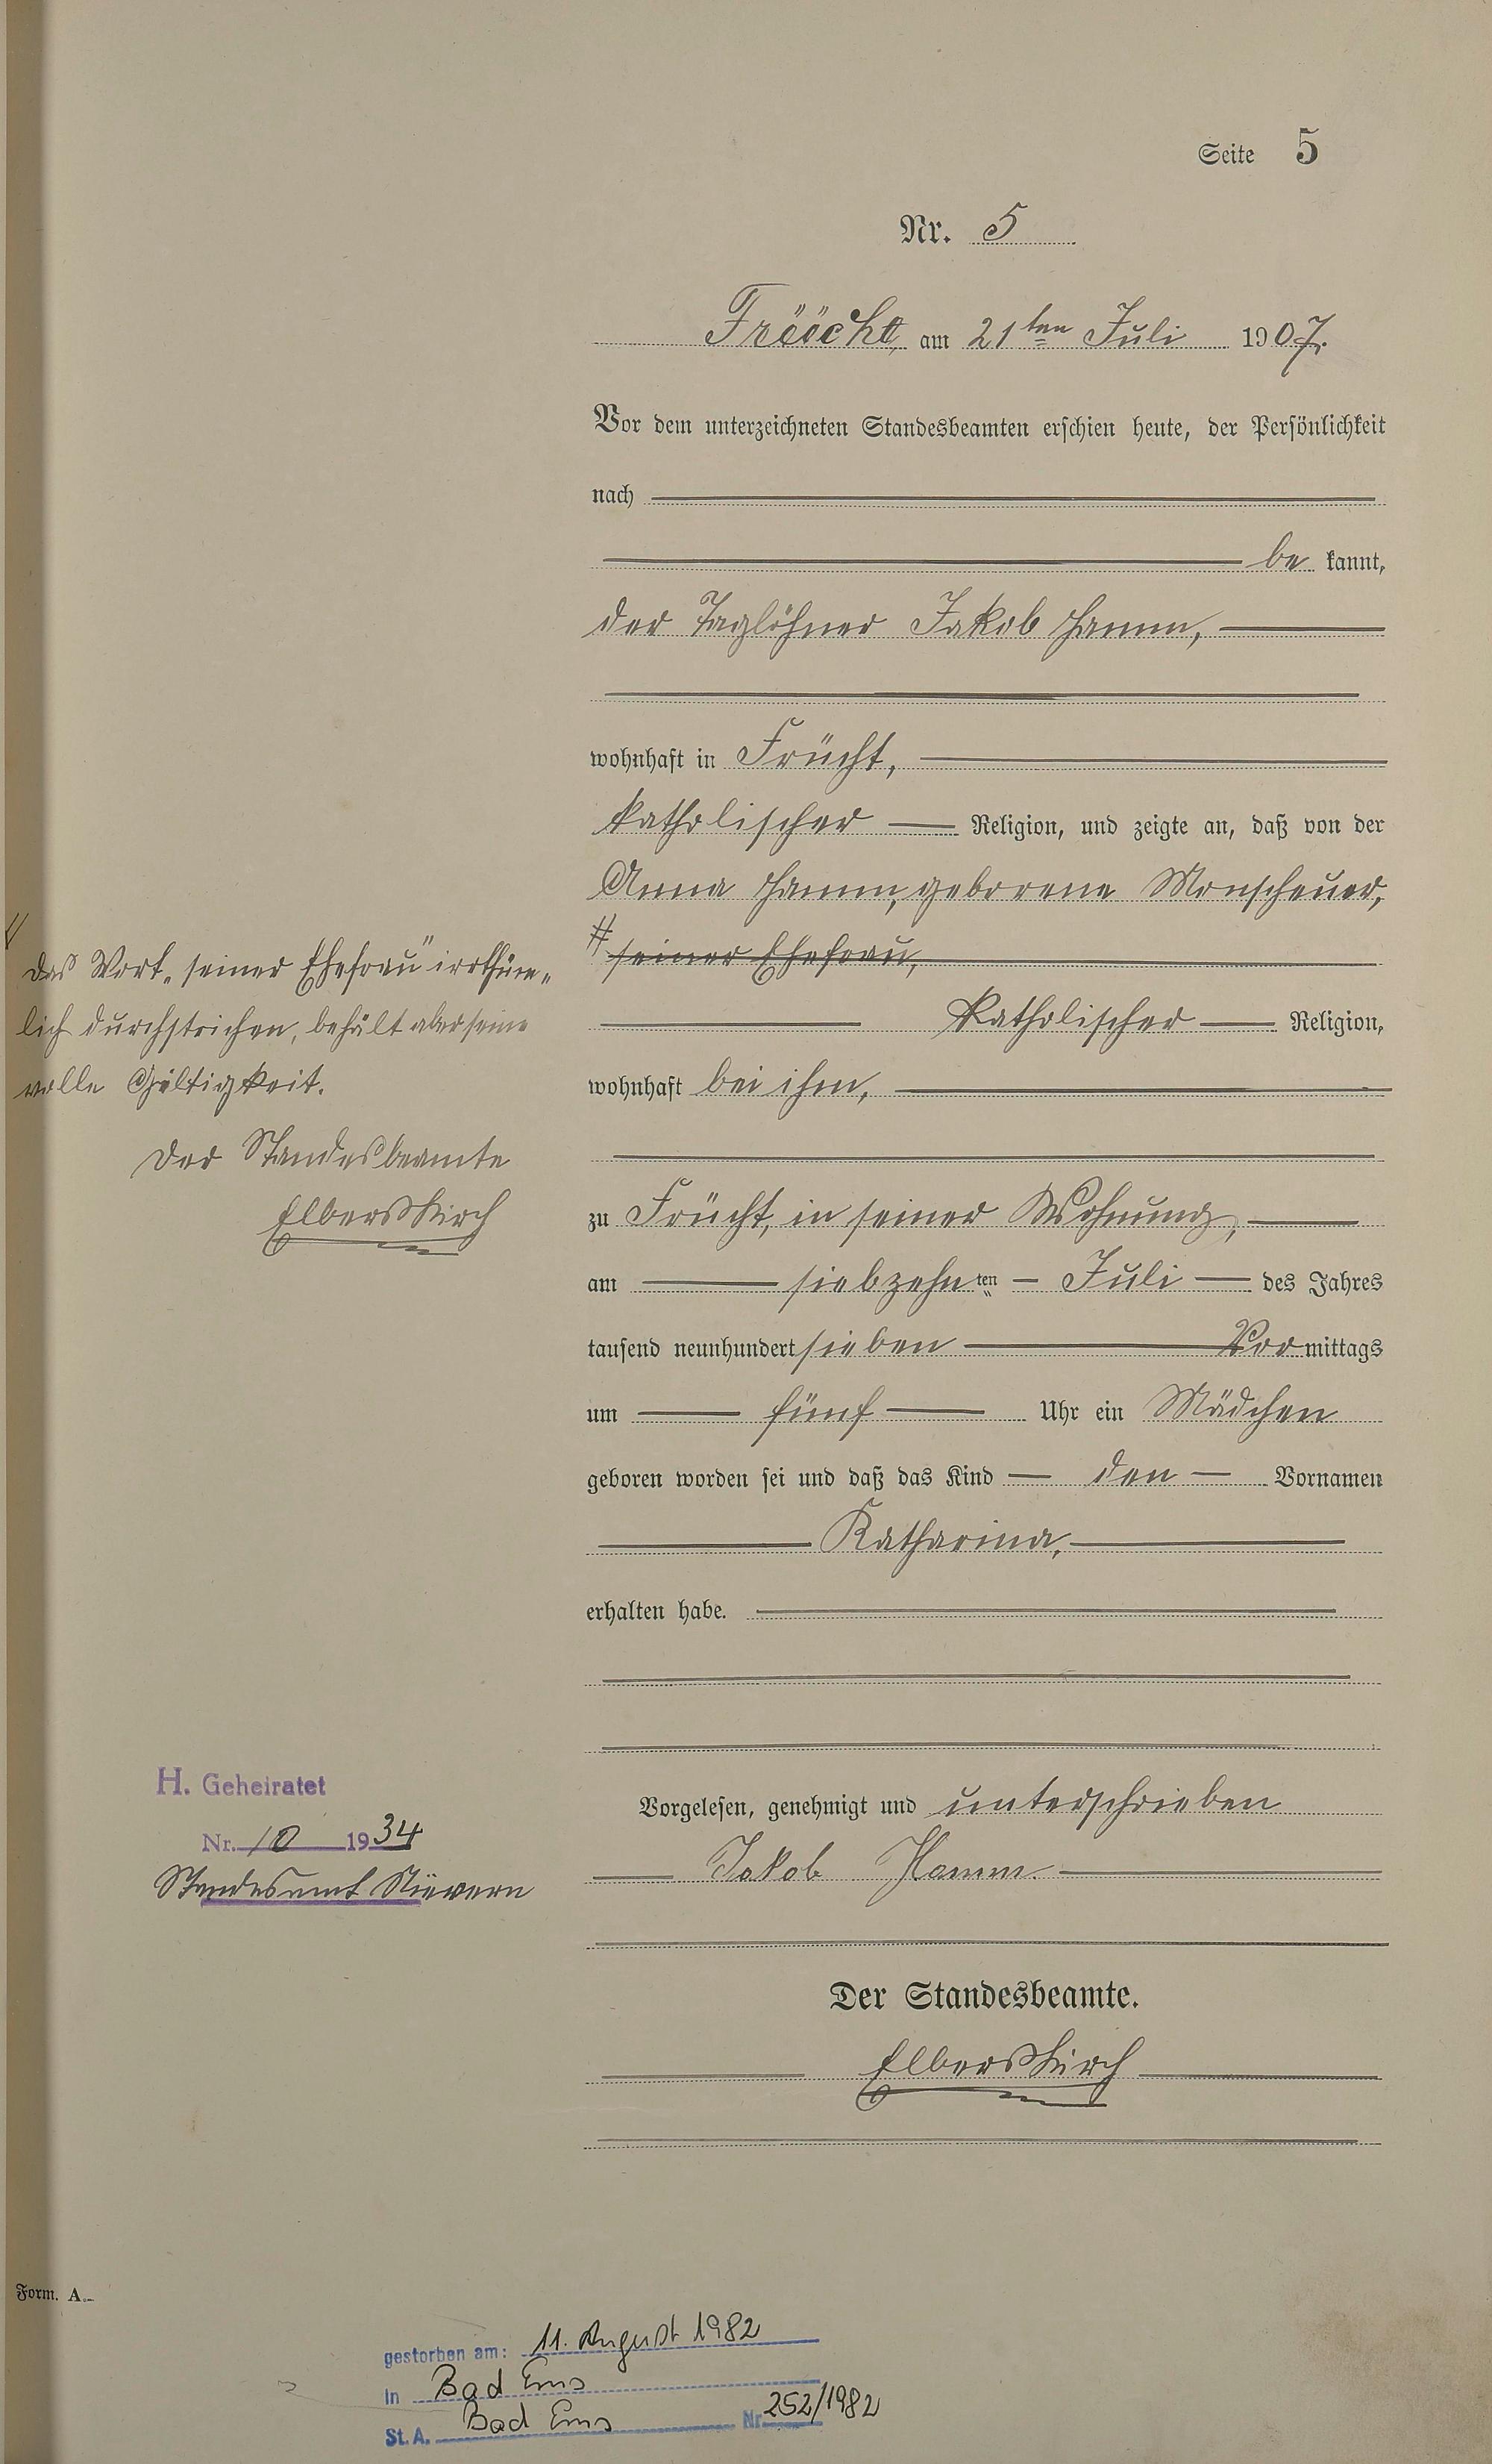 Seite 5
Nr. 5
Früücht, am 21ten Juli 1907.
Vor dem unterzeichneten Standesbeamten erschien heute, der Persönlichkeit
nach
be kannt,
der Taglöhner Jakob Hamm,
wohnhaft in Frücht,
katholischer Religion, und zeigte an, daß von der
Anna Hamm, geborene Monscheuer,
# seiner Ehefrau,
katholischer Religion,
wohnhaft bei ihm,
zu Frücht, in seiner Wohnung,
am siebzehnten Juli des Jahres
tausend neunhundert sieben Vormittags
um fünf Uhr ein Mädchen
geboren worden sei und daß das Kind den Vornamen
Katharina,
erhalten habe.
Vorgelesen, genehmigt und unterschrieben
Jakob Hamm.
Der Standesbeamte.
Elberskirch
das Wort „seiner Ehefrau" irrthüm-
lich durchstrichen, behält aber seine
volle Gültigkeit.
Der Standesbeamte
Elberskirch
H. Geheiratet
Nr. 10 1934
Standesamt Nievern
Form. A.
gestorben am: 11. August 1982
in Bad Ems
St. A. Bad Ems Nr. 252/1982